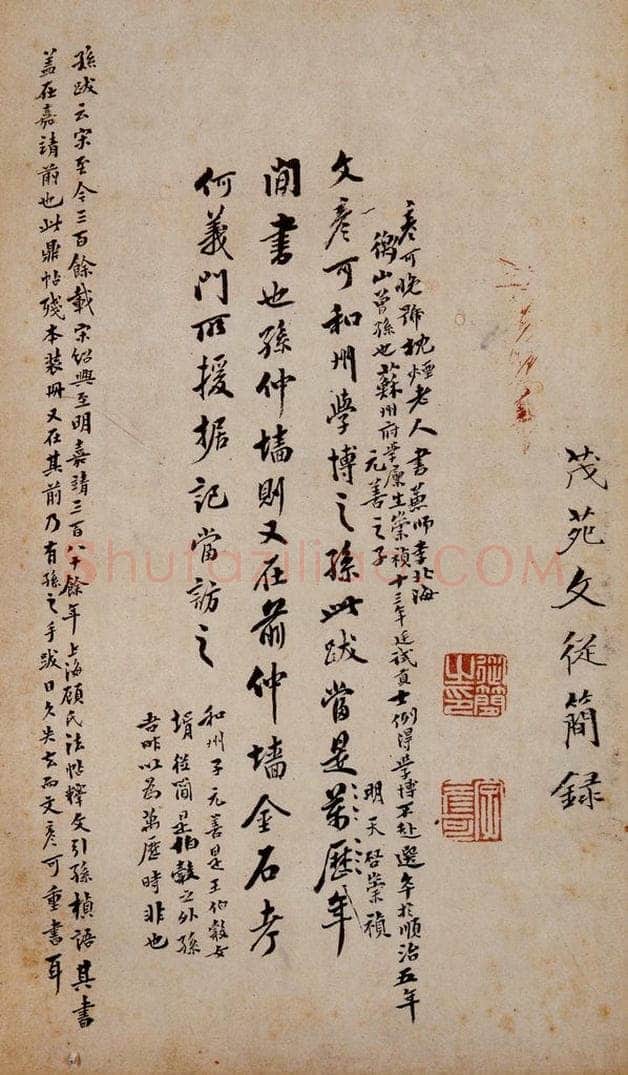 茂苑文從簡錄
從簡之印
彥可晚號枕煙老人書兼師李北海
衡山曾孫也蘇州府學廩生崇禎十三年廷試貢士例得學博不赴選卒於順治五年
元善之子
文彥可和州學博之孫此跋當是萬歷年
明天啓崇禎
間書也孫仲墻則又在前仲墻金石考
何義門所援据記當訪之
和州子元善是王伯穀女
壻從簡是伯穀之外孫
吾昨以為萬歷時非也
孫跋云宋至今三百餘載宋紹興至明嘉靖三百八十餘年上海顧氏法帖釋文引孫楨語其書
蓋在嘉靖前也此鼎帖殘本裝冊又在其前乃有孫之手跋日久失去而文彥可重書耳
Shufaziliao.COM